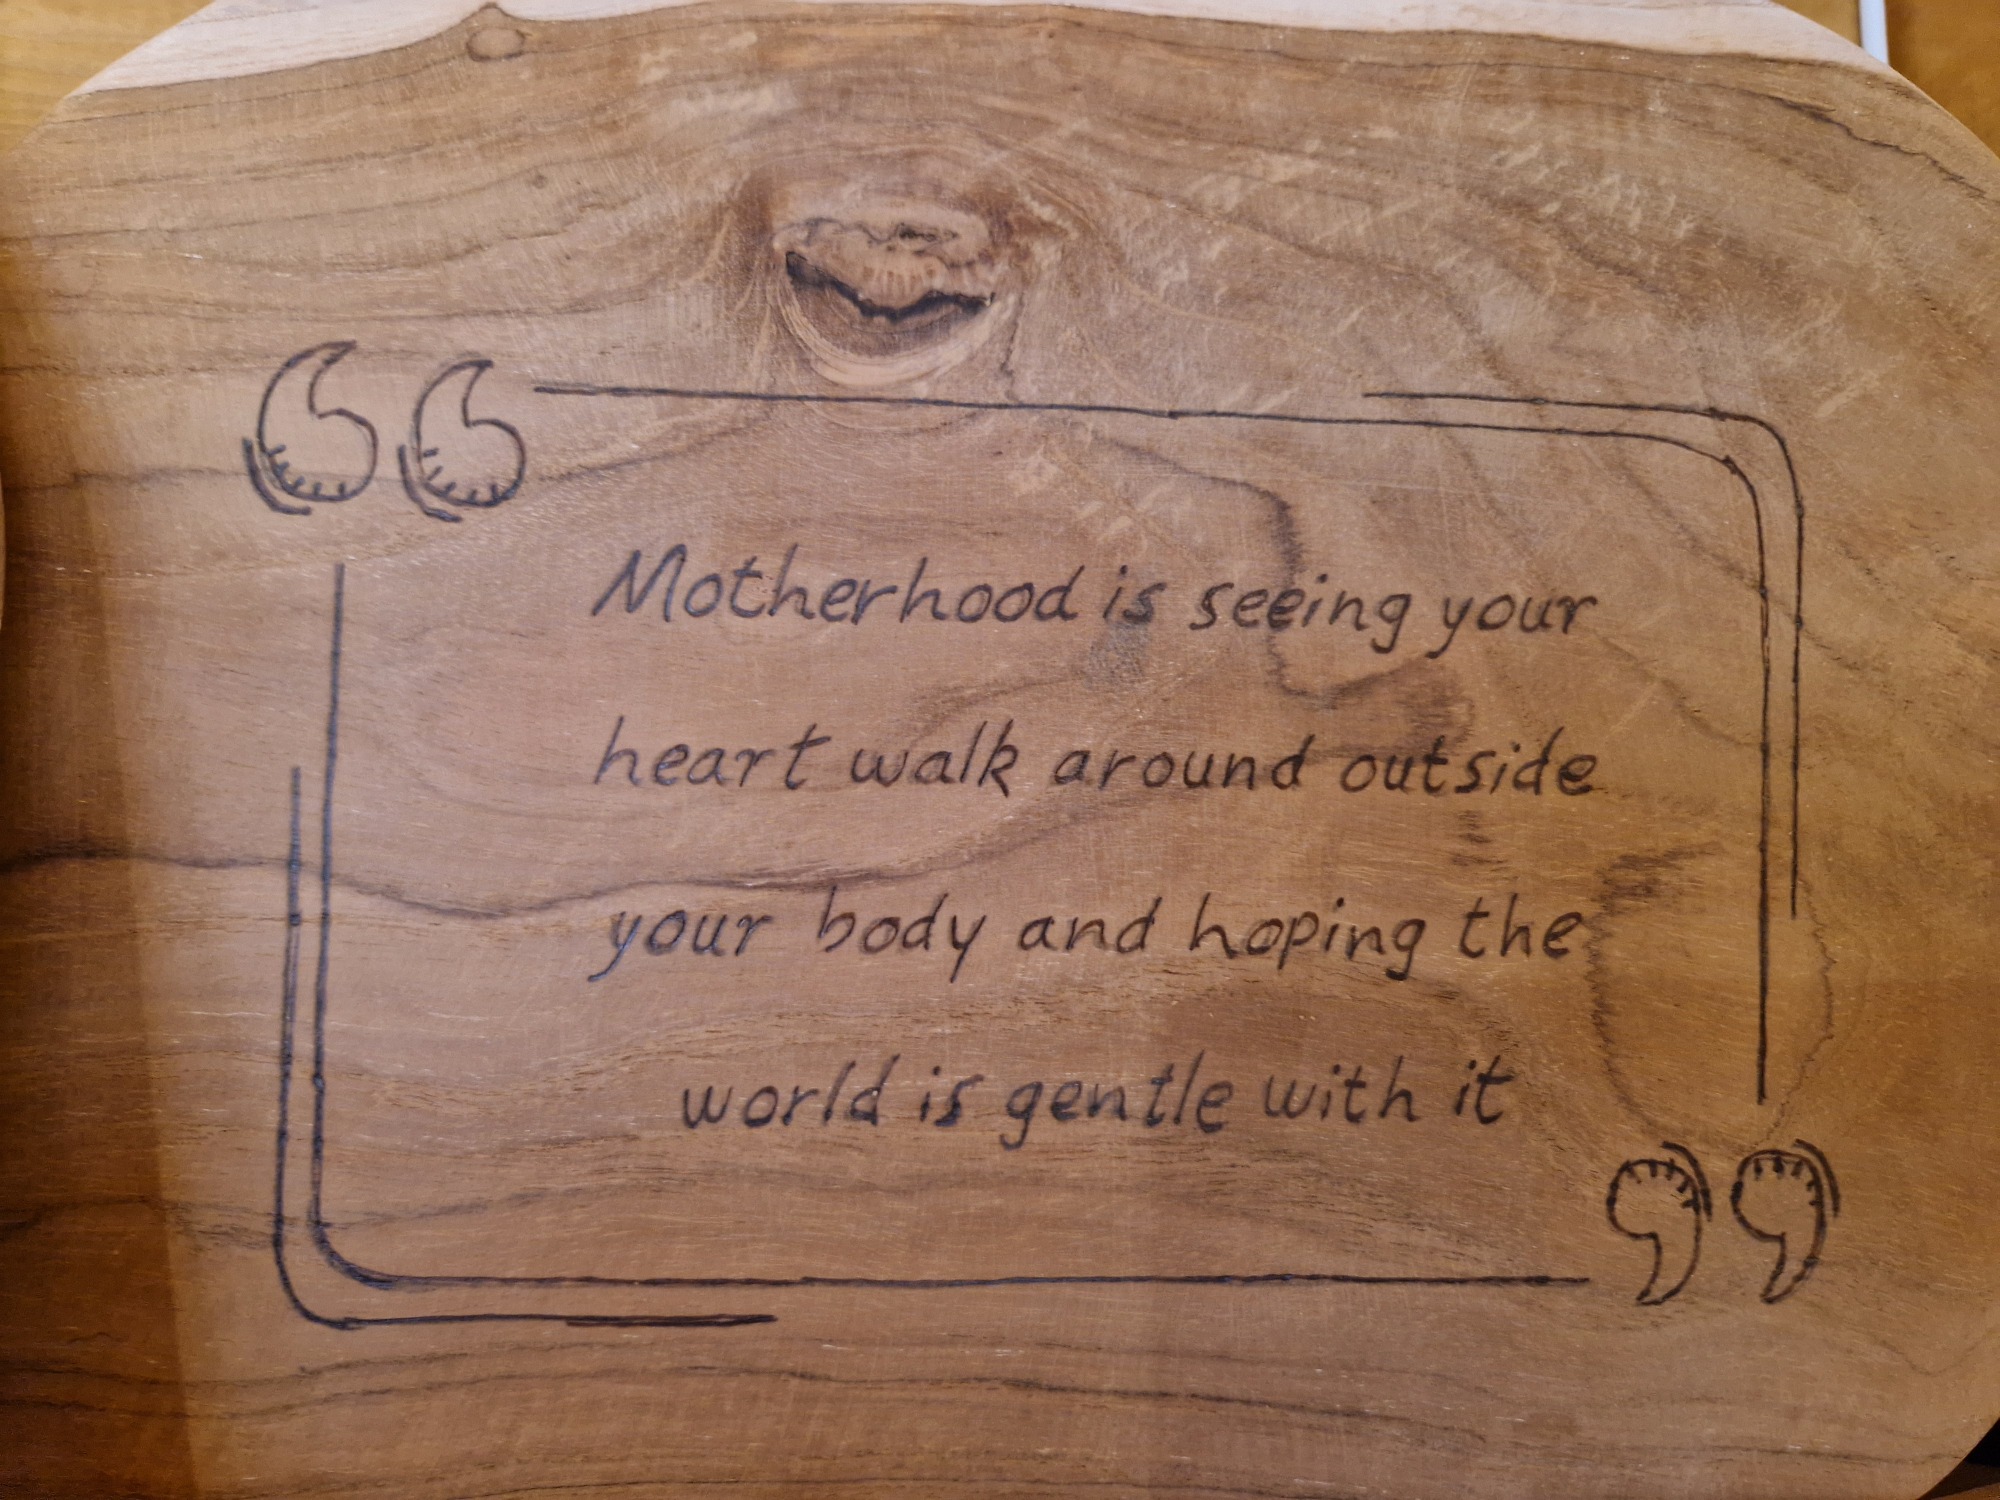 Motherhood is seeing your
heart walk around outside
your body and hoping the
world is gentle with it